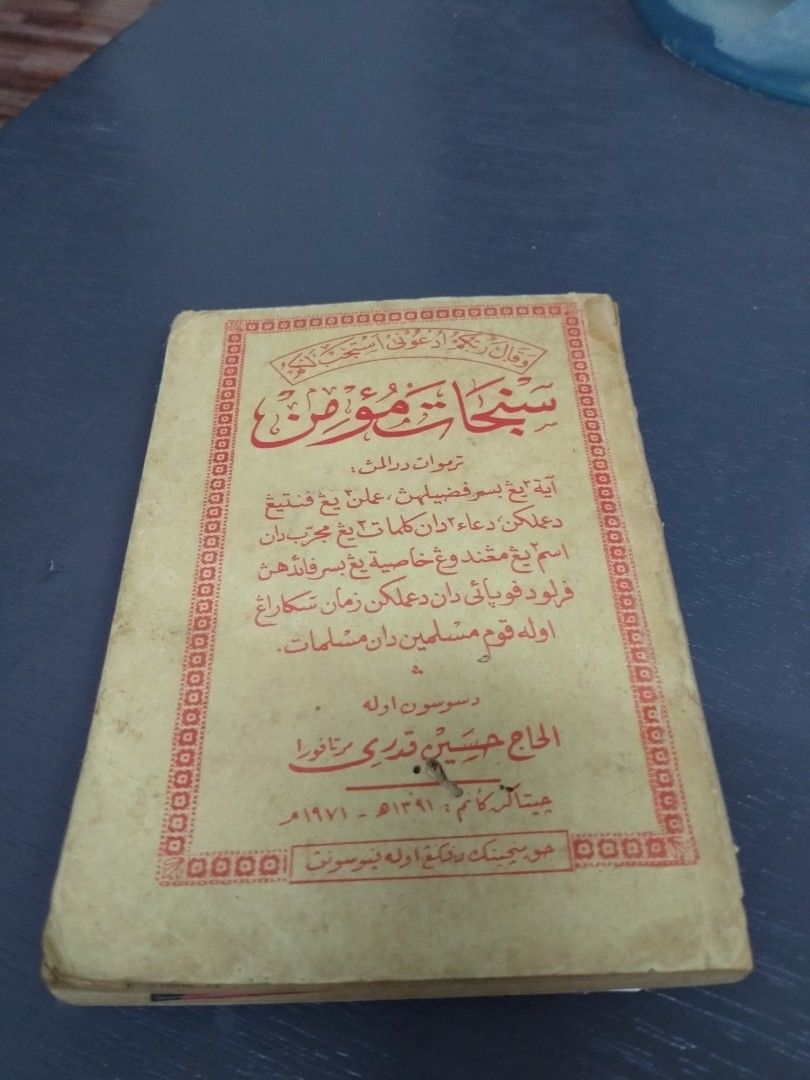 وَقَالَ رَبُّكُمُ ادْعُوْنِيْ اَسْتَجِبْ لَكُمْ
سَنْجَات مُؤْمِنْ
ترموات ددالمڽ :
آية٢ يڠ بسر فضيلهڽ، عملن٢ يڠ فنتيڠ
دعملكن، دعاء٢ دان كلمات٢ يڠ مجرّب دان
اسم٢ يڠ مڠندوڠ خاصية يڠ بسر فائدهڽ
فرلو دفوپائي دان دعملكن زمان سكارڠ
اوله قوم مسلمين دان مسلمات.
دسوسون اوله
الحاج حسين قدري مرتافورا
چيتاكن كأنم : ١٣٩١ھ - ١٩٧١م
حق چيتق دڤݢڠ اوله ڤڽوسونڽ